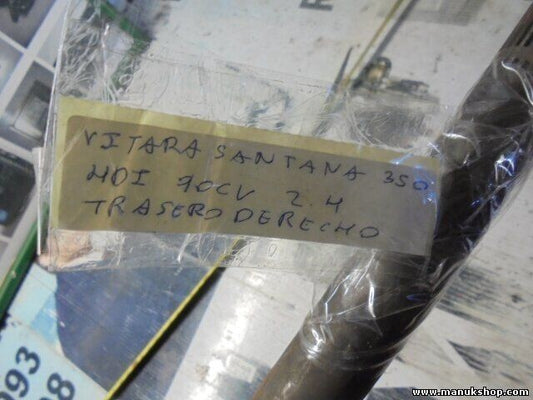 VITARA SANTANA 350
HDI 90CV 2.4
TRASERO DERECHO
993
8
www.manukshop.com